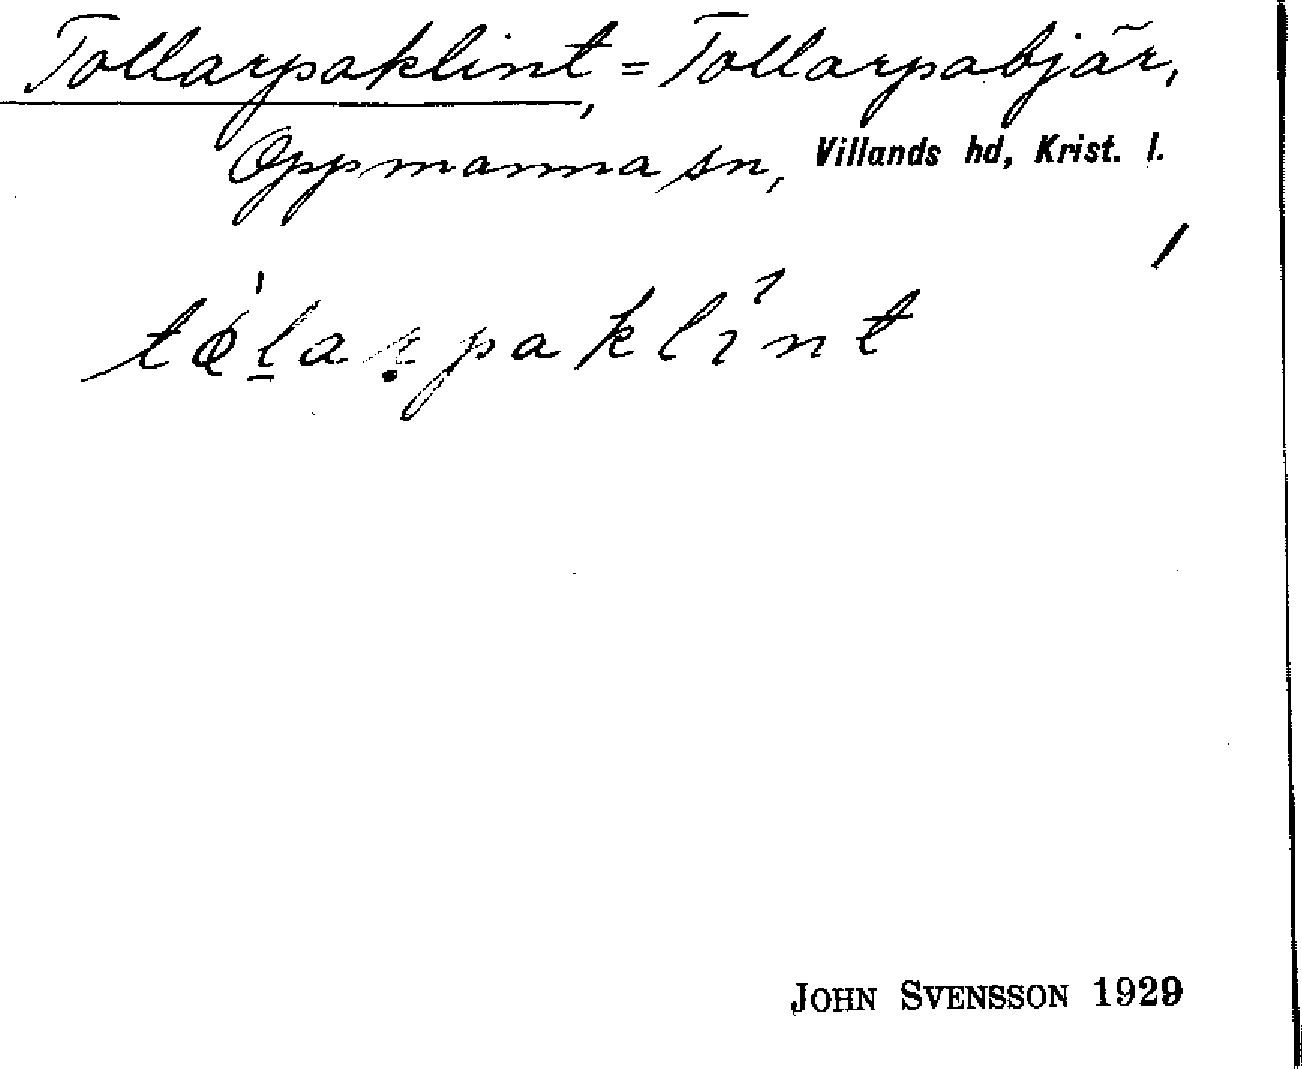 Tollarpaklint, = Tollarpabjär,
Oppmanna sn, Villands hd, Krist. l.
/
JOHN SVENSSON 1929